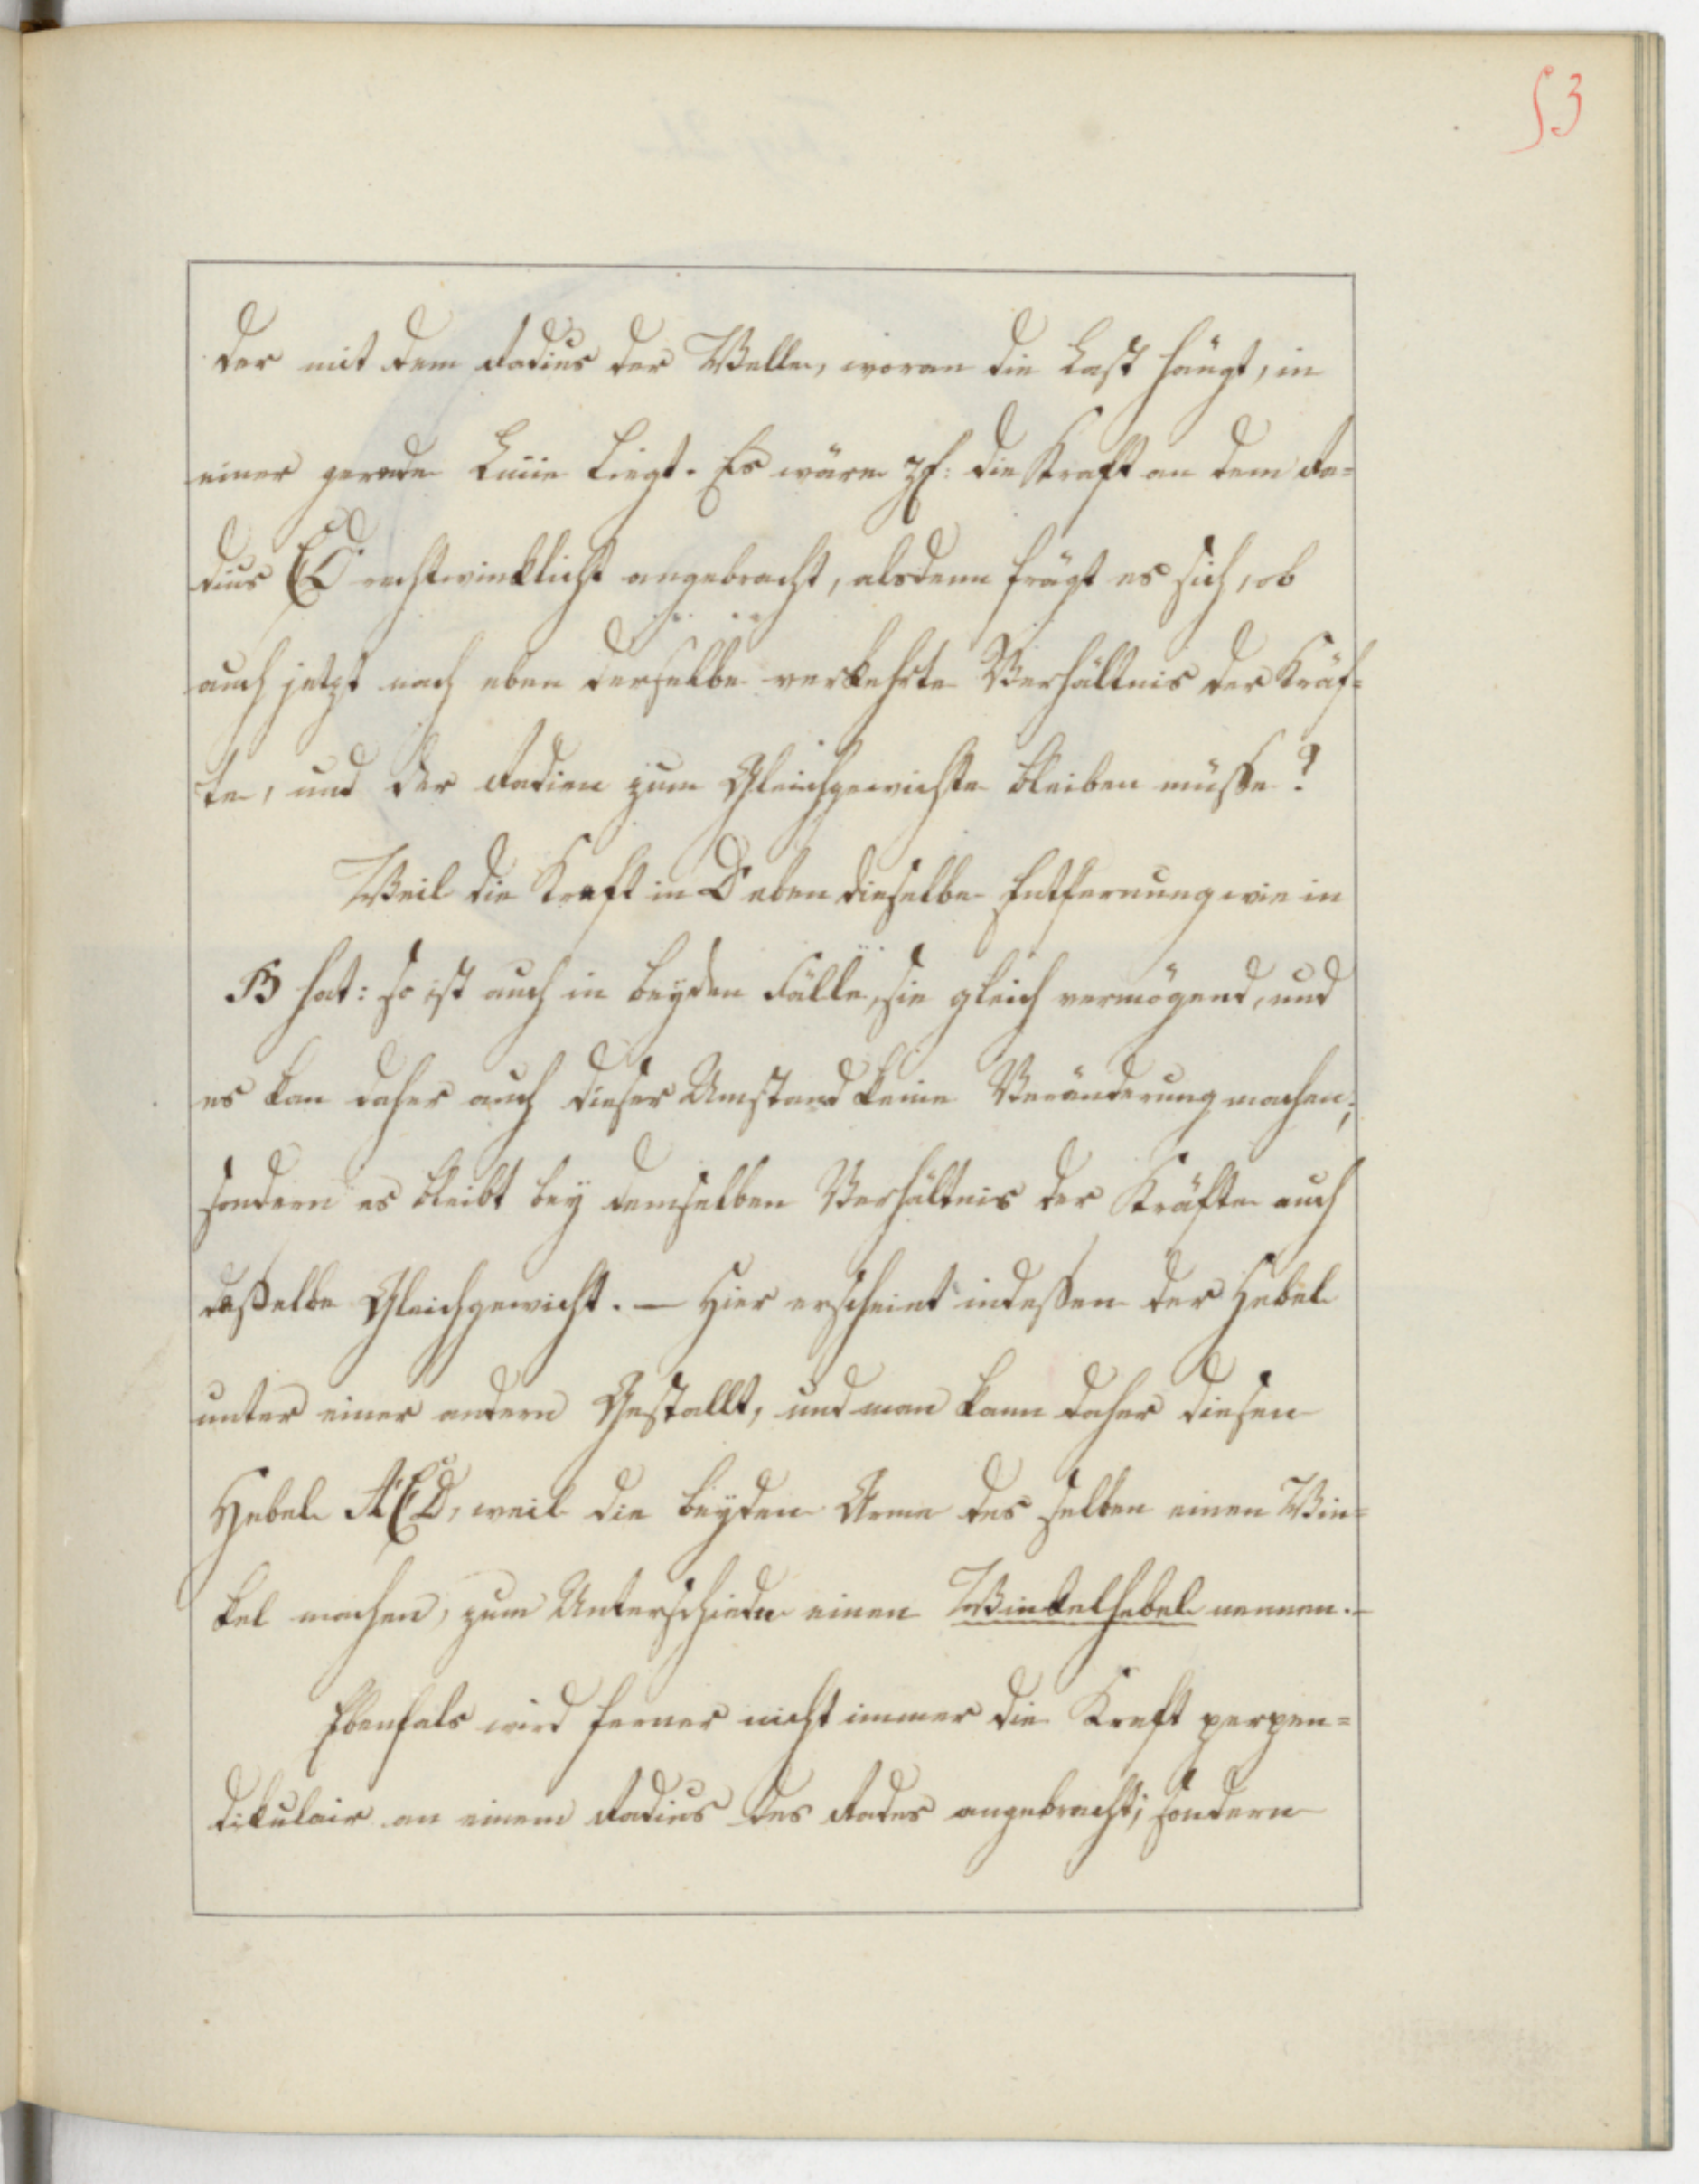 53
der mit dem Radius der Welle, woran die Last hängt, in
einer gerade Linie liegt. Es wäre z. E: die Kraft an dem Ra=
dius CD rechtwinklicht angebracht, alsdenn frägt es sich, ob
auch jetzt nach eben derselbe verkehrte Verhältnis der Kräf=
te, und der Radien zum Gleichgewichte bleiben müsse?
Weil die Kraft in D eben dieselbe Entfernung wie in
B hat: so ist auch in beyden Fälle, sie gleich vermögend, und
es kan daher auch dieser Umstand keine Veränderung machen;
sondern es bleibt bey demselben Verhältnis der Kräfte auch
daßelbe Gleichgewicht. — Hier erscheint indessen der Hebel
unter einer andern Gestallt, und man kann daher diesen
Hebel ACD, weil die beyden Arme des selben einen Win=
kel machen, zum Unterschiede einen Winkelhebel nennen.—
Ebenfals wird ferner nicht immer die Kraft perpen=
dikulair an einem Radius des Rades angebracht; sondern